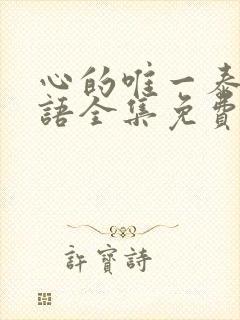 心的唯一泰
語全集免費
許寶詩